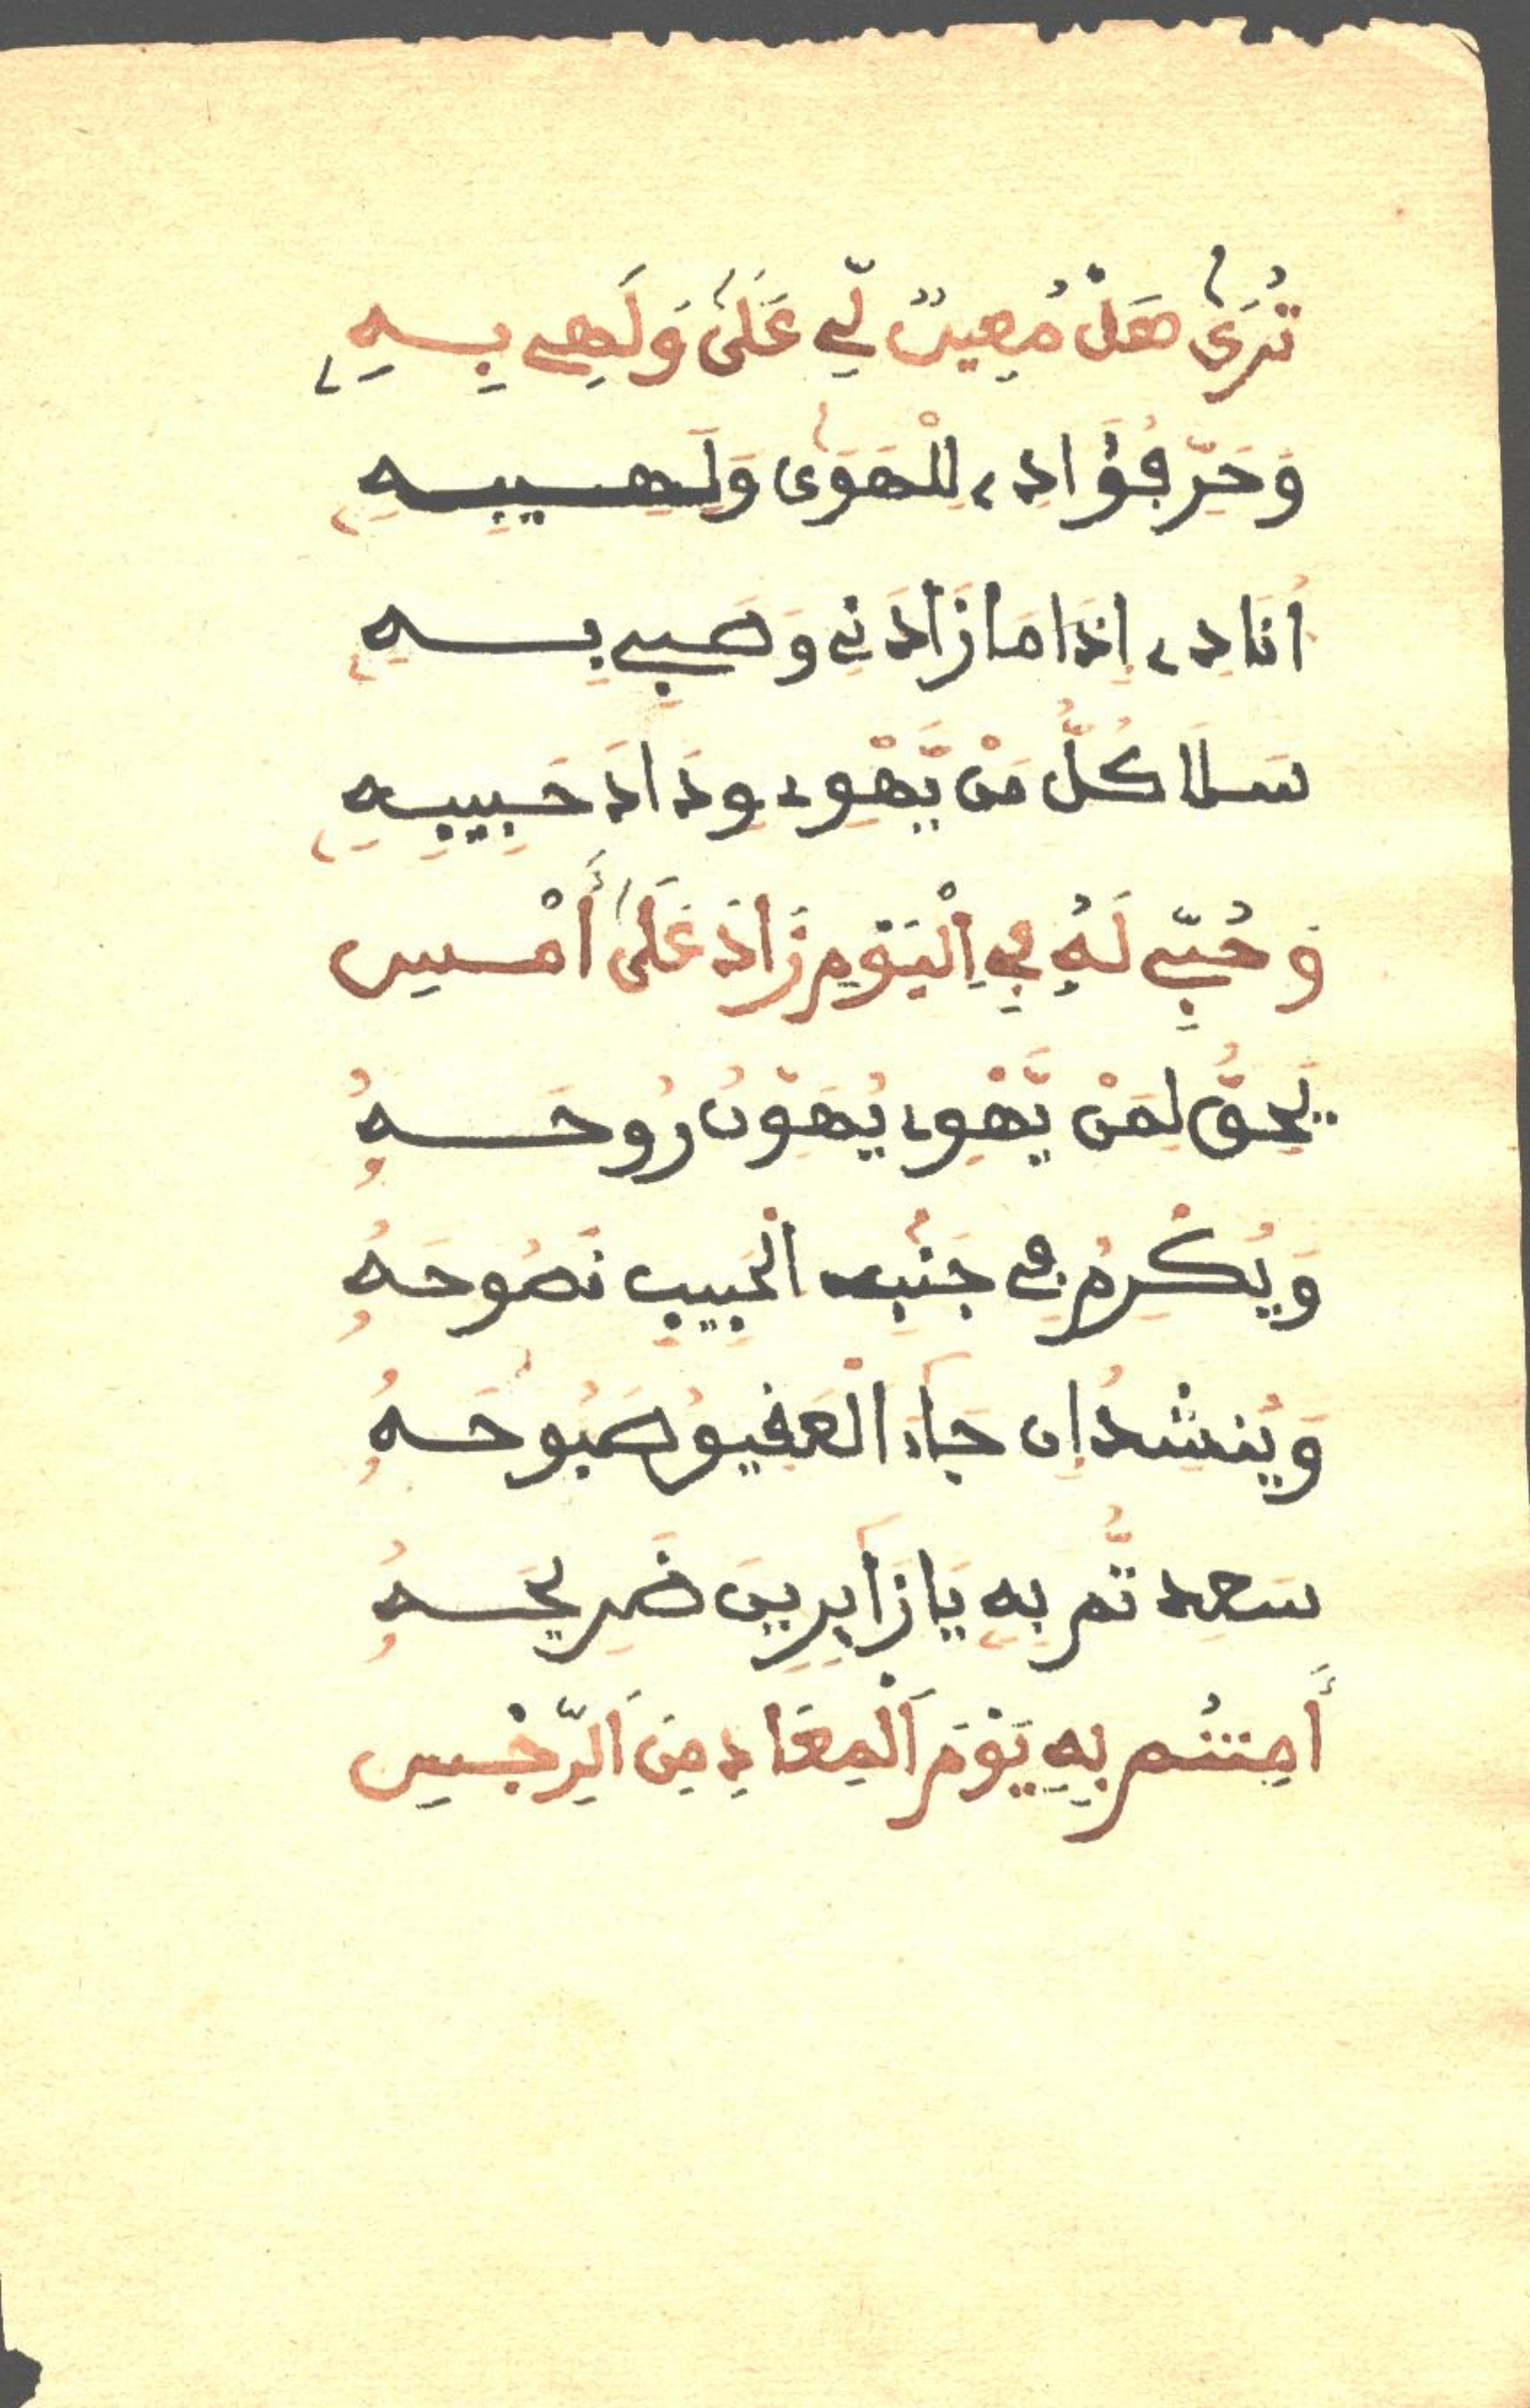 تُرَىٰ هَلْ مُعِينٌ لِّي عَلَىٰ وَلَهِي بِهِ
وَحَرِّ فُؤَادِي لِلْهَوَىٰ وَلَهِيبِهِ
أُنَادِي إِذَا مَا زَادَنِي وَصَبِي بِهِ
سَلَا كُلُّ مَنْ يَّهْوِى وِدَادَ حَبِيبِهِ
وَحُبِّي لَهُ فِي اِلْيَوْمِ زَادَ عَلَىٰ أَمْسِ
يَحِقُّ لِمَنْ يَّهْوِى يُهَوِّنُ رُوحَهُ
وَيُكْرِمُ فِي جَنْبِ الْحَبِيبِ نَصُوحَهُ
وَيُنشِدُ إِن جَاءَ الْعَقِيقُ صَبُوحَهُ
سَعِدتُّم بِهِ يَا زَآئِرِينَ ضَرِيحَهُ
أَمِنتُم بِهِ يَوْمَ اَلْمَعَادِ مِنَ اَلرِّجْسِ